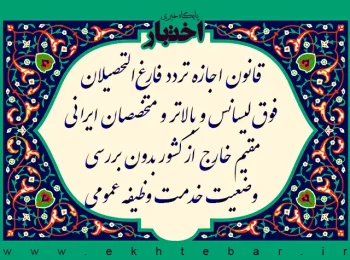 پایگاه خبری
اختبار
قانون اجازه تردد فارغ التحصیلان
فوق لیسانس و بالاتر و متخصصان ایرانی
مقیم خارج از کشور بدون بررسی
وضعیت خدمت وظیفه عمومی
www.ekhtebar.ir